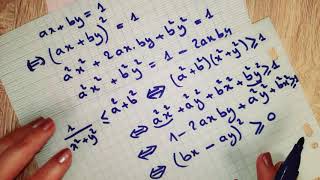 ax + by = 1
⇔ (ax + by)² = 1
a²x² + 2ax.by + b²y² = 1
a²x² + b²y² = 1 - 2axby
1/(x²+y²) ≤ a² + b²
⇔ (a²+b²)(x²+y²) ≥ 1
⇔ a²x² + a²y² + b²x² + b²y² ≥ 1
⇔ 1 - 2axby + a²y² + b²x² ≥ 1
⇔ (bx - ay)² ≥ 0